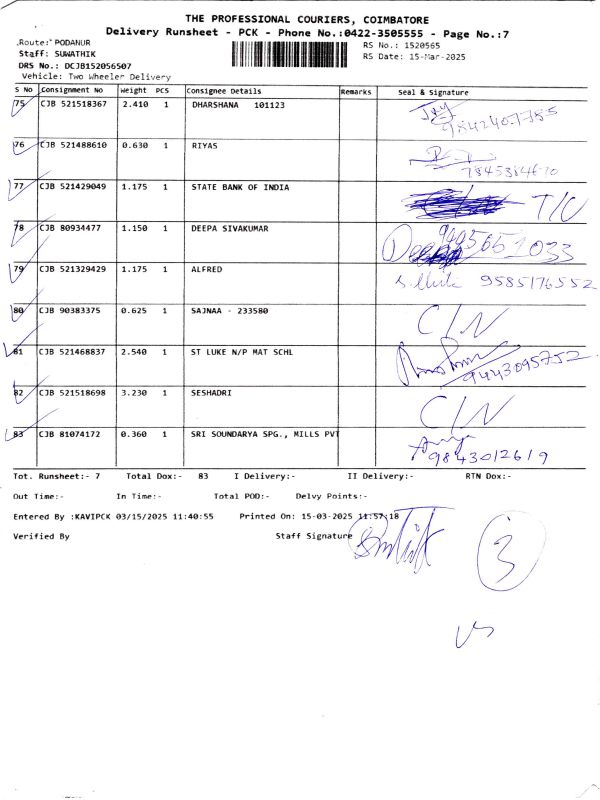 THE PROFESSIONAL COURIERS, COIMBATORE
Delivery Runsheet - PCK - Phone No.:0422-3505555 - Page No.:7
Route: PODANUR
RS No.: 1520565
Staff: SUWATHIK
RS Date: 15-Mar-2025
DRS No.: DCJB152056507
Vehicle: Two Wheeler Delivery
S No Consignment No Weight PCS Consignee Details Remarks Seal & Signature
75 CJB 521518367 2.410 1 DHARSHANA 101123
76 CJB 521488610 0.630 1 RIYAS
77 CJB 521429049 1.175 1 STATE BANK OF INDIA
78 CJB 80934477 1.150 1 DEEPA SIVAKUMAR
79 CJB 521329429 1.175 1 ALFRED 9585176552
80 CJB 90383375 0.625 1 SAJNAA - 233580 C/N
81 CJB 521468837 2.540 1 ST LUKE N/P MAT SCHL 9443095752
82 CJB 521518698 3.230 1 SESHADRI C/N
83 CJB 81074172 0.360 1 SRI SOUNDARYA SPG., MILLS PVT 9843012619
Tot. Runsheet:- 7 Total Dox:- 83 I Delivery:- II Delivery:- RTN Dox:-
Out Time:- In Time:- Total POD:- Delvy Points:-
Entered By :KAVIPCK 03/15/2025 11:40:55 Printed On: 15-03-2025 11:57:18
Verified By Staff Signature
3